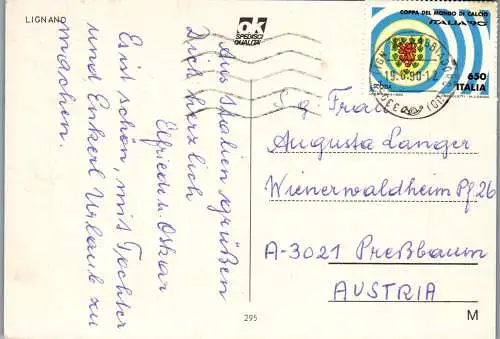 LIGNANO
ok
SPEDISCI
QUALITÀ
COPPA DEL MONDO DI CALCIO
ITALIA'90
650
ITALIA
Aus Italien grüßen
Dich herzlich
Elfriede u. Oskar
Es ist schön, mit Tochter
und Enkerl Urlaub zu
machen.
S.g. Frau
Augusta Langer
Wienerwaldheim Pf 26
A-3021 Preßbaum
AUSTRIA
295
M